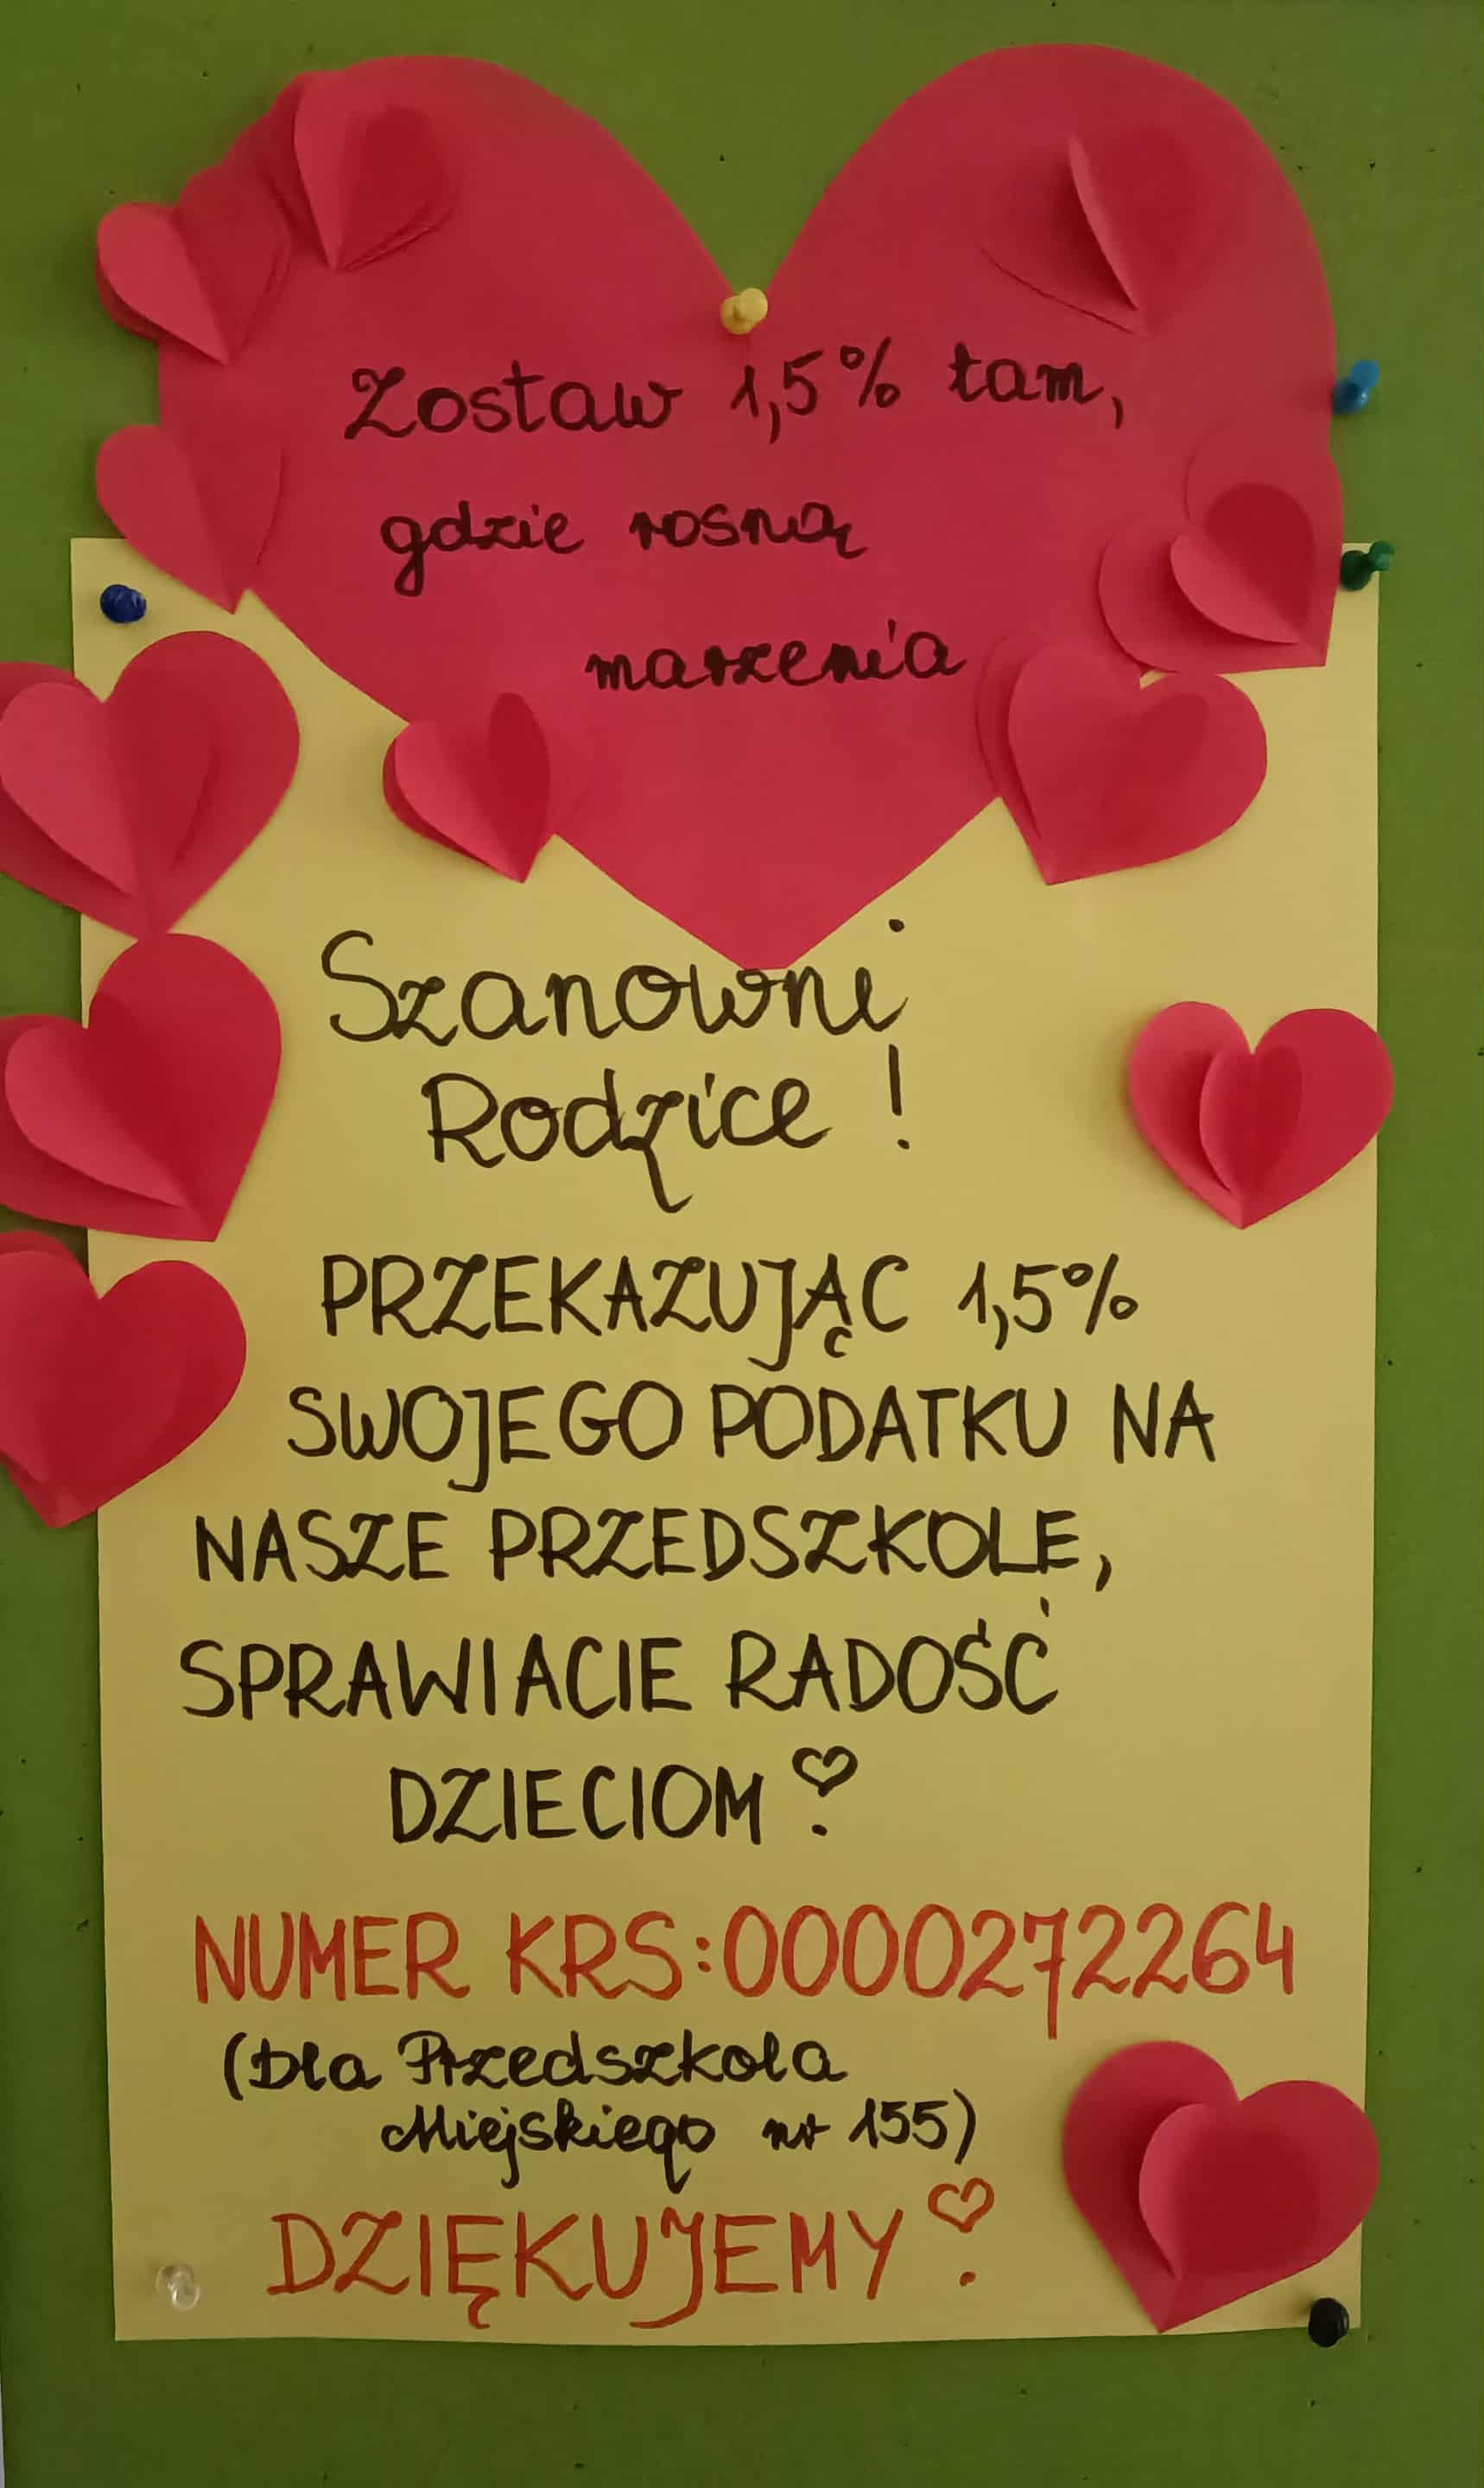 Zostaw 1,5% tam,
gdzie rosną
marzenia
Szanowni
Rodzice!
PRZEKAZUJĄC 1,5%
SWOJEGO PODATKU NA
NASZE PRZEDSZKOLE,
SPRAWIACIE RADOŚĆ
DZIECIOM ♡
NUMER KRS:0000272264
(Dla Przedszkola
Miejskiego nr 155)
DZIĘKUJEMY ♡